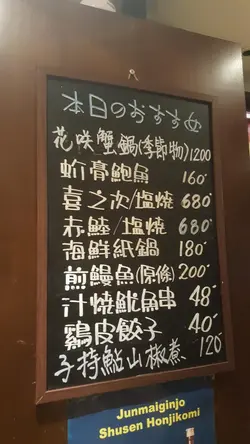 本日のおすすめ
花咲蟹鍋(季節物)1200
蚧膏鮑魚 160
喜之次/塩燒 680
赤鯥/塩燒 680
海鮮紙鍋 180
煎鰻魚(原條) 200
汁燒魷魚串 48
鷄皮餃子 40
子持鮎山椒煮 120
Junmaiginjo
Shusen Honjikomi